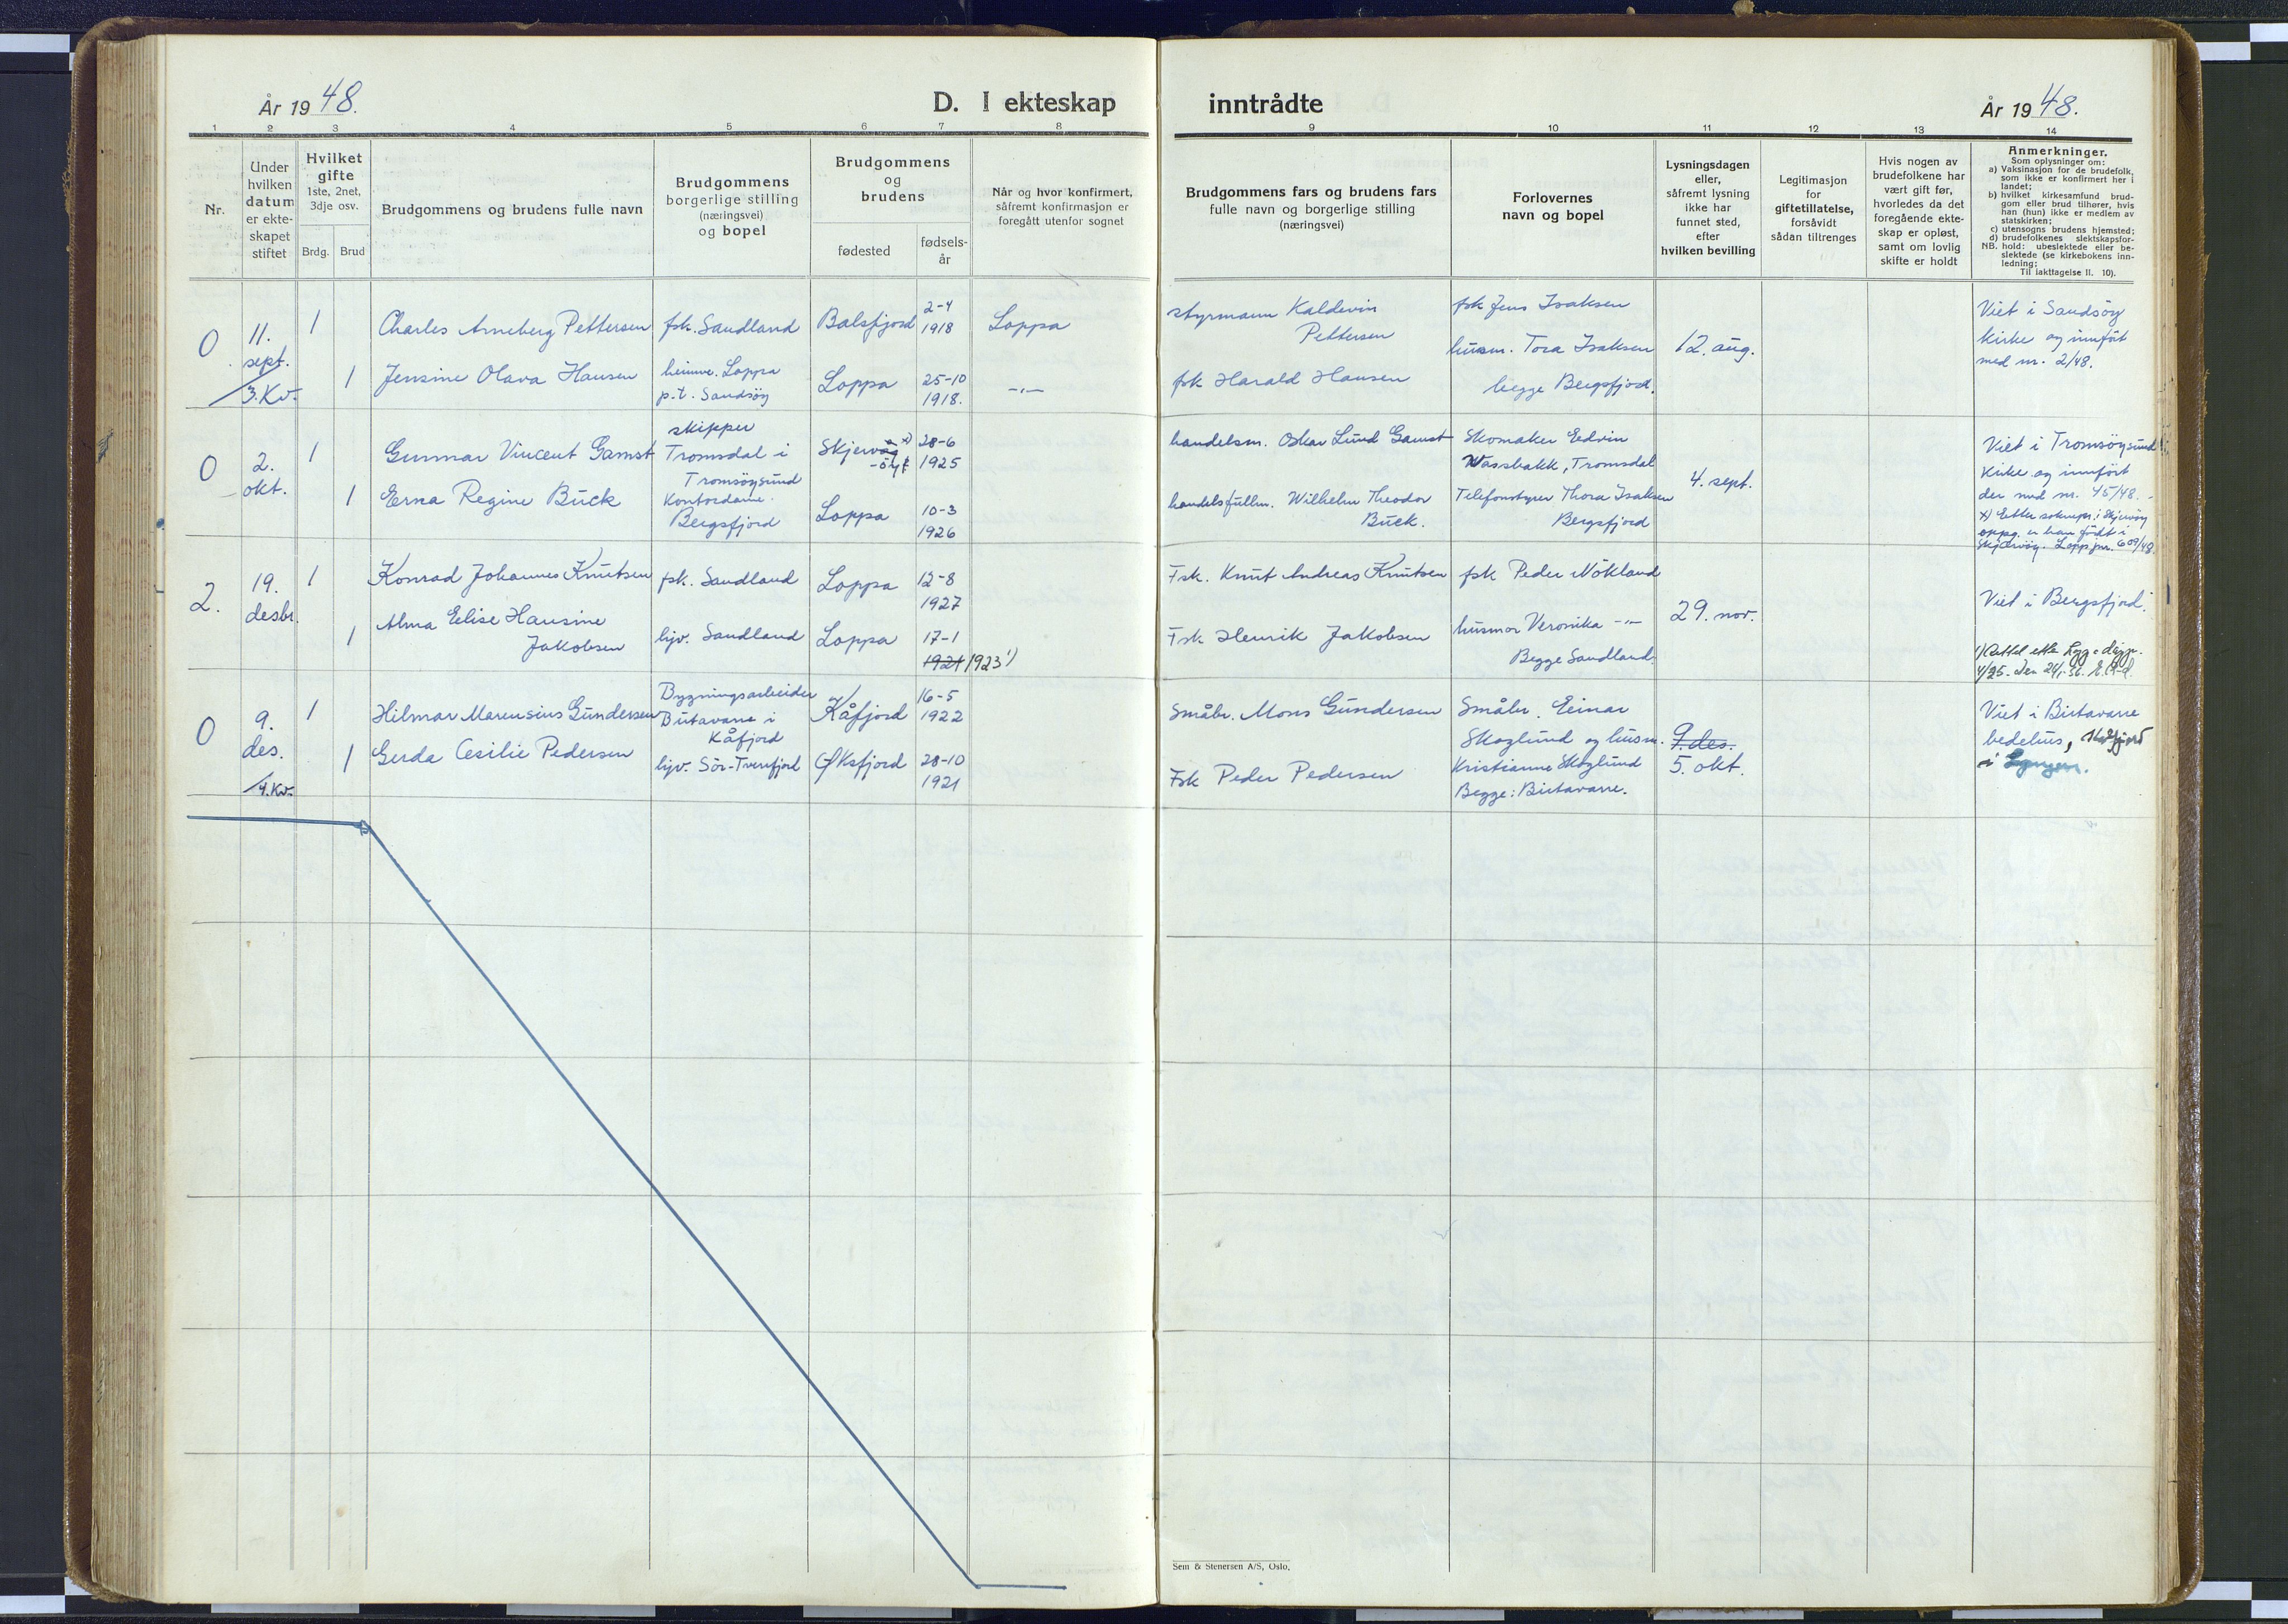 År 1948.
D. I ekteskap
inntrådte
År 1948.
1 2 3 4 5 6 7 8 9 10 11 12 13 14
Nr.
Under
hvilken
datum
er ekte-
skapet
stiftet
Hvilket
gifte
1ste, 2net,
3dje osv.
Brdg. Brud
Brudgommens og brudens fulle navn
Brudgommens
borgerlige stilling
(næringsvei)
og bopel
Brudgommens
og
brudens
fødested
fødsels-
år
Når og hvor konfirmert,
såfremt konfirmasjon er
foregått utenfor sognet
Brudgommens fars og brudens fars
fulle navn og borgerlige stilling
(næringsvei)
Forlovernes
navn og bopel
Lysningsdagen
eller,
såfremt lysning
ikke har
funnet sted,
efter
hvilken bevilling
Legitimasjon
for
giftetillatelse,
forsåvidt
sådan tiltrenges
Hvis nogen av
brudefolkene har
vært gift før,
hvorledes da det
foregående ekte-
skap er opløst,
samt om lovlig
skifte er holdt
Anmerkninger.
Som oplysninger om:
a) Vaksinasjon for de brudefolk,
som ikke er konfirmert her i
landet;
b) hvilket kirkesamfund brud-
gom eller brud tilhører, hvis
han (hun) ikke er medlem av
statskirken;
c) utensogns brudens hjemsted;
d) brudefolkenes slektskapsfor-
NB. hold: ubeslektede eller be-
slektede (se kirkebokens inn-
ledning;
Til iakttagelse II. 10).
0
11.
sept.
3.Kv.
1
Charles Arneberg Pettersen
fsk. Sandland
Balsfjord
2-4
1918
Loppa
styrmann Kaldevin
Pettersen
fsk Jens Isaksen
husm. Tora Isaksen
begge Bergsfjord.
12. aug.
Viet i Sandsöy
kirke og innfört
med nr. 2/48.
1
Jensine Olava Hansen
heimev. Loppa
p.t. Sandsöy
Loppa
25-10
1918.
-"-
fsk Harald Hansen
0
2.
okt.
1
Gunnar Vincent Gamst
skipper
Tromsdal i
Tromsöysund
Skjervög x)
28-6
1925
handelsm. Oskar Lund Gamst
Skomaker Edvin
Wassbakk, Tromsdal
4. sept.
Viet i Tromsöysund
Kirke og innfört
der med nr. 45/48.
x) Etter sokнepr. i Skjervöy
oppg. er han födt i
Skjærvöy. Lopp jnr. 609/48
1
Erna Regine Buck
Kontordame.
Bergsfjord
Loppa
10-3
1926
handelsfullm. Wilhelm Theodor
Buck.
Telefonstyrer Thora Isaksen
Bergsfjord
2.
19.
desbr.
1
Konrad Johannes Knutsen
fsk. Sandland
Loppa
12-8
1927
Fsk. Knut Andreas Knutsen
fsk Peder Nökland
29. nov.
Viet i Bergsfjord.
1
Alma Elise Hansine
Jakobsen
hjv. Sandland
Loppa
17-1
1921 1923 1)
Fsk Henrik Jakobsen
husmor Veronika -"-
Begge Sandland.
0
9.
des.
4.Kv.
1
Hilmar Marensius Gundersen
Bygningsarbeider
Birtavarre i
Kåfjord
Kåfjord
16-5
1922
Småbr. Mons Gundersen
Småbr. Einar
Skoglund og husm.
Kristianne Skoglund
Begge: Birtavarre.
9. des.
5. okt.
Viet i Birtavarre
bedehus, Kåfjord
i Lyngen.
1
Gerda Cesilie Pedersen
hjv. Sör-Tverrfjord
Øksfjord
28-10
1921
Fsk Peder Pedersen
Sem & Stenersen A/S, Oslo.